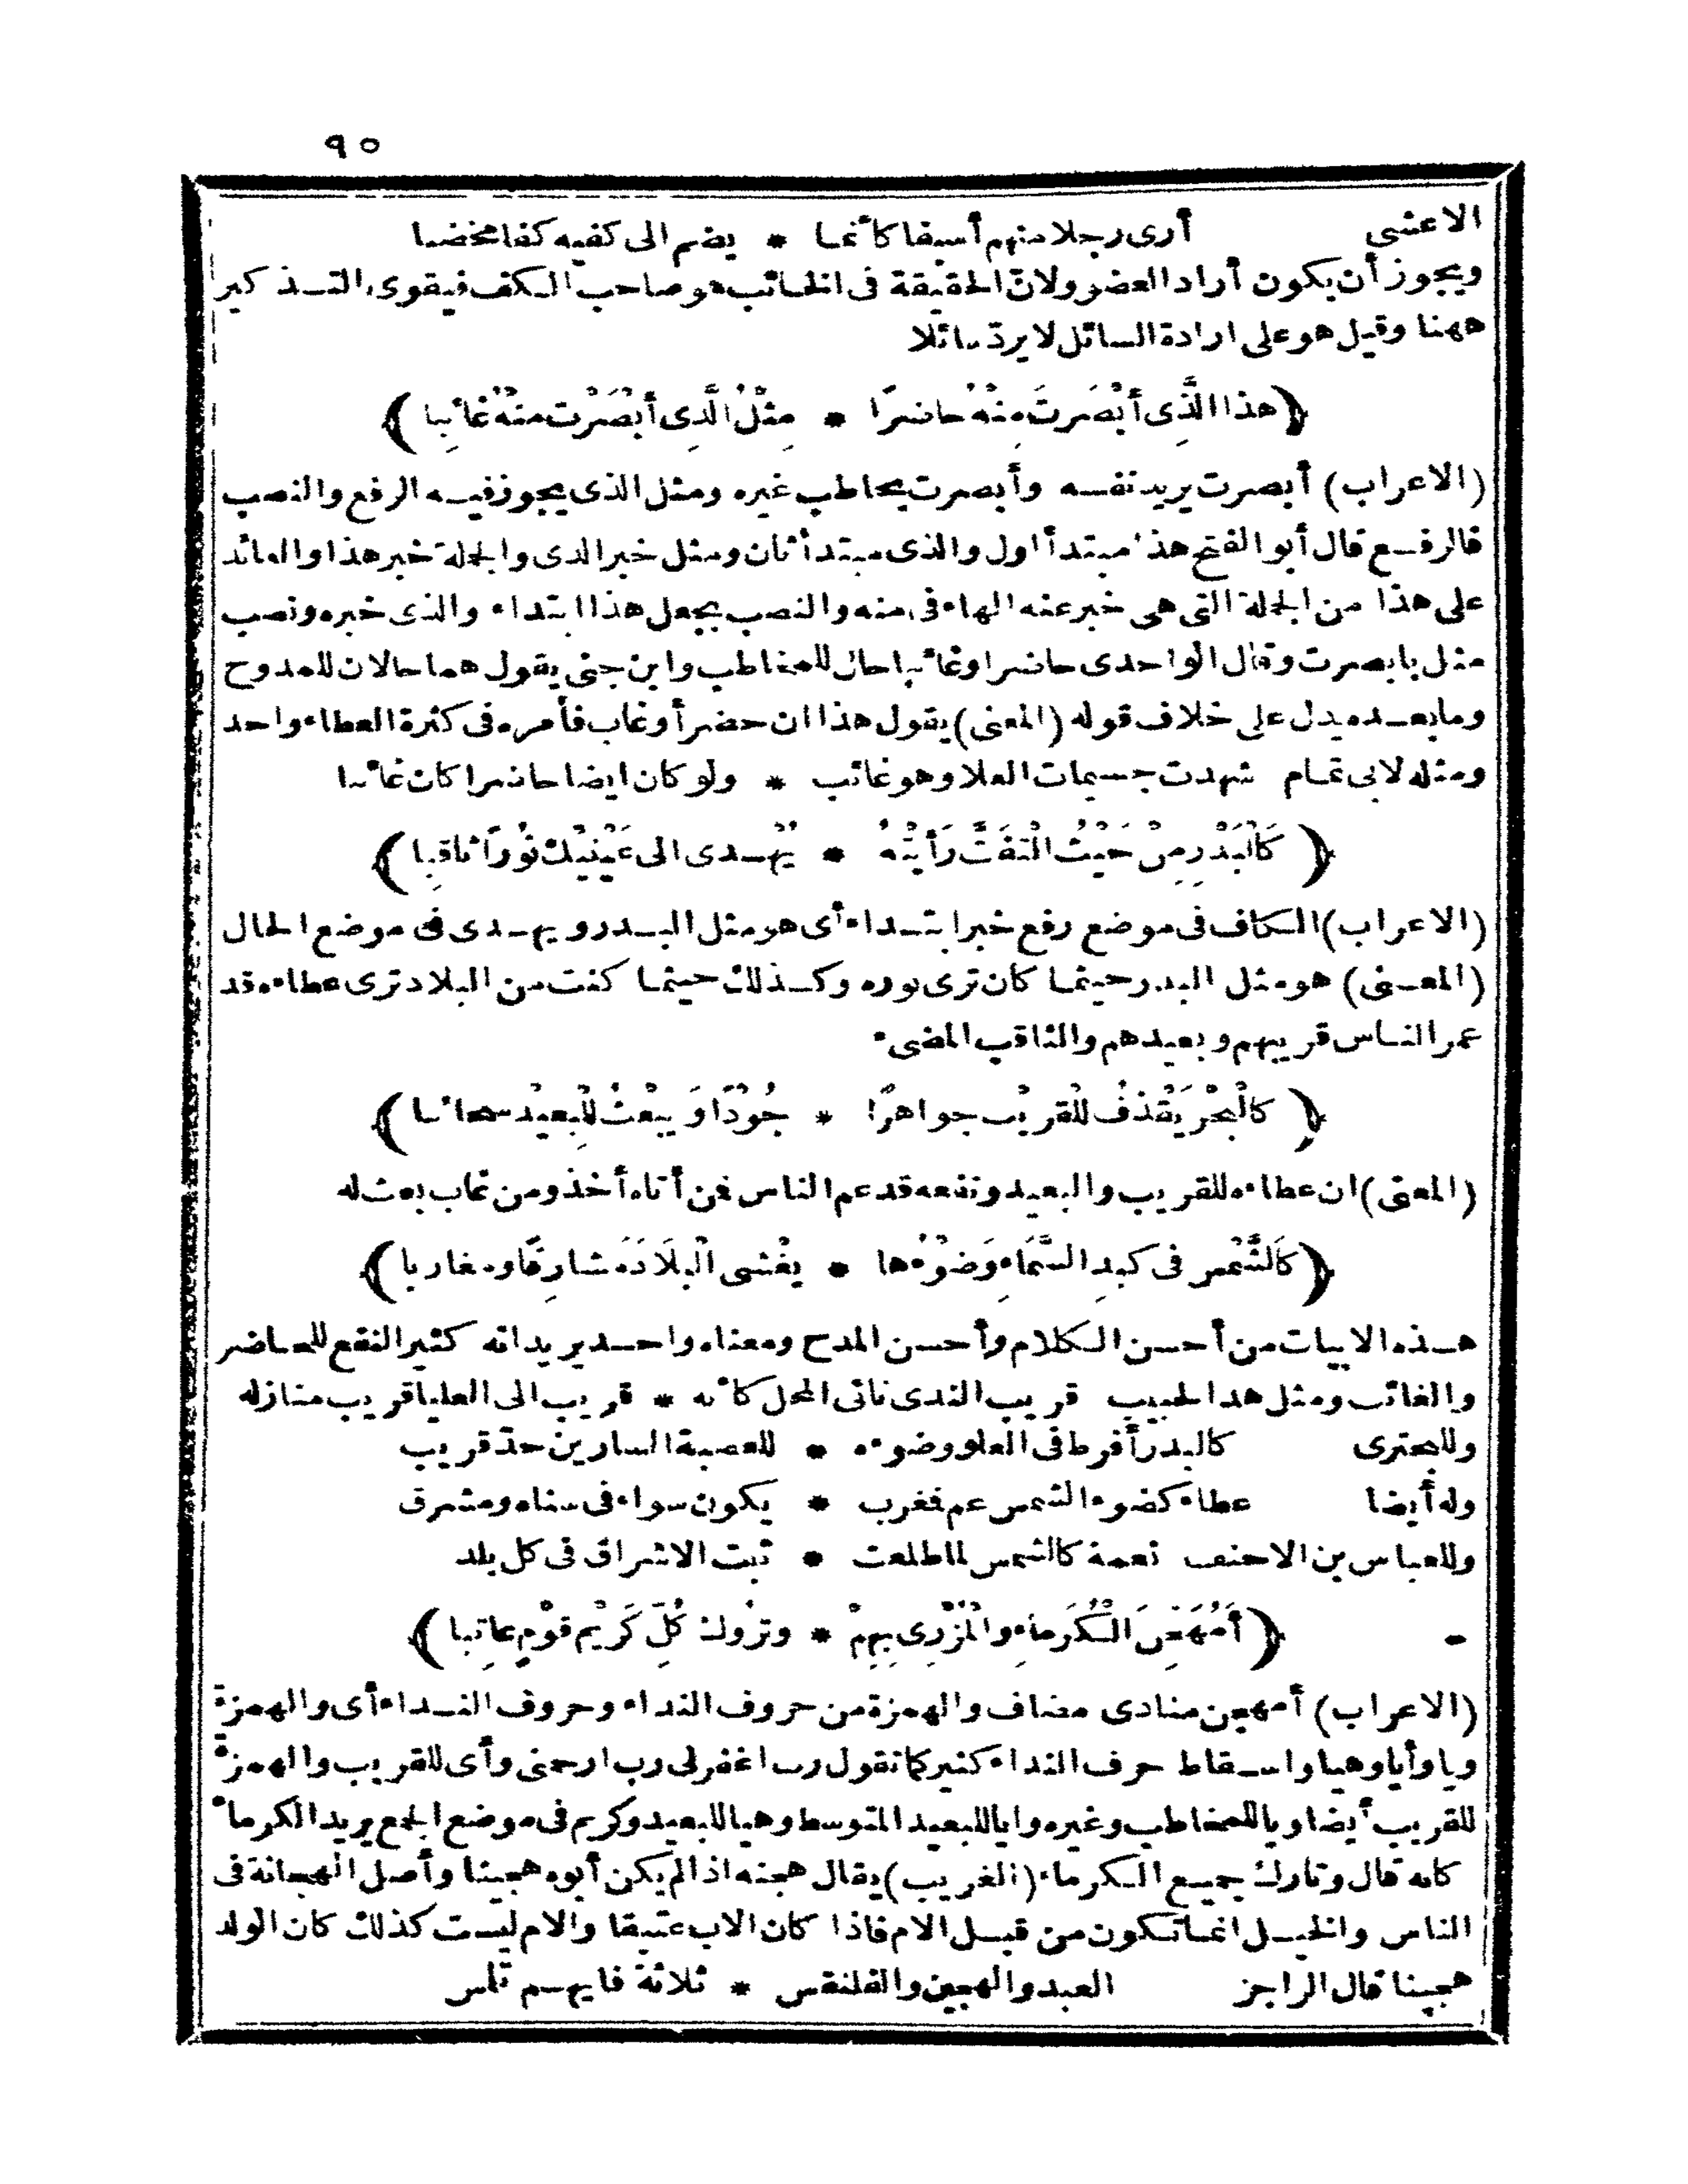 ٩٥
الاعشى أرى رجلا منهم أسيفا كأنما * يضم الى كفيه كفا مخضبا
ويجوز أن يكون أراد العضو ولان الحقيقة فى الخائب هو صاحب الكف فيقوى التذكير
ههنا وقيل هو على ارادة السائل لا يردّ سائلا
﴿هذا الَّذِى أبْصَرتَ مِنْهُ حاضرًا * مِثْلُ الَّذِى أبْصَرْت منْهُ غائِبا﴾
(الاعراب) أبصرت يريد نفسه وأبصرت يخاطب غيره ومثل الذى يجوز فيه الرفع والنصب
فالرفع قال أبو الفتح هذا مبتدأ اول والذى مبتدأ ثان ومثل خبر الذى والجملة خبر هذا والعائد
على هذا من الجملة التى هى خبر عنه الهاء فى منه والنصب بجعل هذا ابتداء والذى خبره ونصب
مثل بابصرت وقال الواحدى حاضرا وغائبا حال للمخاطب وابن جنى يقول هما حالان للمدوح
وما بعده يدل على خلاف قوله (المعنى) يقول هذا ان حضر أو غاب فأمره فى كثرة العطاء واحد
ومثله لابى تمام شهدت جسيمات العلا وهو غائب * ولو كان ايضا حاضرا كان غائبا
﴿كَالْبَدْرِ مِنْ حَيْثُ الْتَفَتَّ رَأَيْتَهُ * يُهْدى الى عَيْنَيْكَ نُورًا ثاقبا﴾
(الاعراب) الكاف فى موضع رفع خبر ابتداء أى هو مثل البدر ويهدى فى موضع الحال
(المعنى) هو مثل البدر حيثما كان ترى نوره وكذلك حيثما كنت من البلاد ترى عطاءه قد
عمر الناس قريبهم وبعيدهم والثاقب المضىء
﴿كالْبَحْرِ يَقْذفُ للْقريْب جواهرًا * جُوْدًا وَيبْعثُ للْبَعيْد سحائبا﴾
(المعنى) ان عطاءه للقريب والبعيد ونفعه قد عم الناس فمن أتاه أخذ ومن غاب بعث له
﴿كَالشَّمْسِ فى كبِدِ السَّمَاءِ وَضَوْءُها * يغْشى الْبِلَادَ مَشارِقًا ومغاربا﴾
هذه الابيات من أحسن الكلام وأحسن المدح ومعناه واحد يريد انه كثير النفع للحاضر
والغائب ومثل هذا لحبيب قريب الندى نائى المحل كأنه * قريب الى العليا قريب منازله
وللبحترى كالبدر أفرط فى العلو وضوءه * للعصبة السارين حدّ قريب
وله أيضا عطاء كضوء الشمس عم فمغرب * يكون سواء فى سناه ومشرق
وللعباس بن الاحنف نعمة كالشمس لما طلعت * ثبت الاشراق فى كل بلد
﴿أَمُهَجِّنَ الْكُرَمَاءِ والْمُزْرِى بِهِمْ * وتَرُوك كُلِّ كَرِيْم قوْمٍ عاتِبا﴾
(الاعراب) أمهجن منادى مضاف والهمزة من حروف النداء وحروف النداء أى والهمزة
ويا وأيا وهيا واسقاط حرف النداء كثير كما تقول رب اغفر لى رب ارحمنى وأى للقريب والهمزة
للقريب أيضا ويا للمخاطب وغيره وايا للبعيد المتوسط وهيا للبعيد وكريم فى موضع الجمع يريد الكرماء
كانه قال وتارك جميع الكرماء (الغريب) يقال هجنه اذا لم يكن أبوه هجينا وأصل الهجانة فى
الناس والخيل انما تكون من قبل الام فاذا كان الاب عتيقا والام ليست كذلك كان الولد
هجينا قال الراجز العبد والهجين والفلنقس * ثلاثة فايهم تلمس